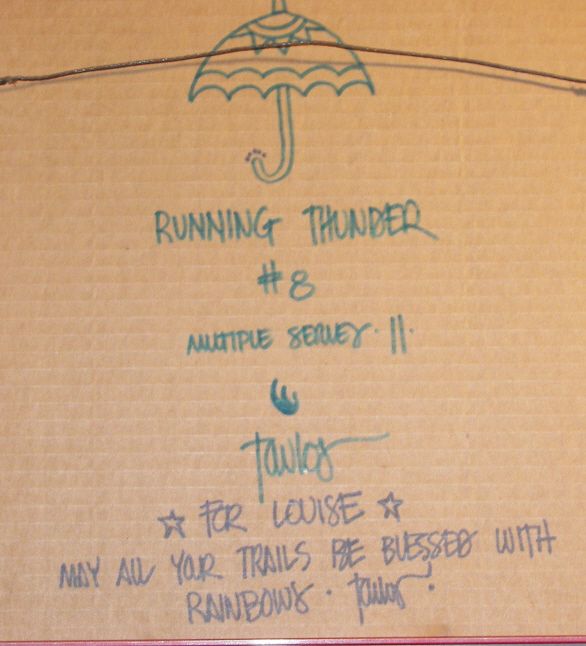 RUNNING THUNDER
#8
MULTIPLE SERIES · II ·
Taylor
☆ FOR LOUISE ☆
MAY ALL YOUR TRAILS BE BLESSED WITH
RAINBOWS · Taylor